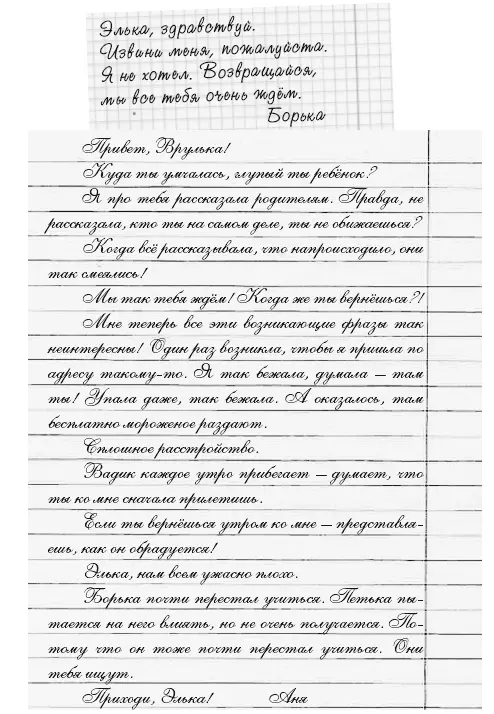 Элька, здравствуй.
Извини меня, пожалуйста.
Я не хотел. Возвращайся,
мы все тебя очень ждём.
Борька
Привет, Врулька!
Куда ты умчалась, глупый ты ребёнок?
Я про тебя рассказала родителям. Правда, не
рассказала, кто ты на самом деле, ты не обижаешься?
Когда всё рассказывала, что напроисходило, они
так смеялись!
Мы так тебя ждём! Когда же ты вернёшься?!
Мне теперь все эти возникающие фразы так
неинтересны! Один раз возникла, чтобы я пришла по
адресу такому-то. Я так бежала, думала — там
ты! Упала даже, так бежала. А оказалось, там
бесплатно мороженое раздают.
Сплошное расстройство.
Вадик каждое утро прибегает — думает, что
ты ко мне сначала прилетишь.
Если ты вернёшься утром ко мне — представля-
ешь, как он обрадуется!
Элька, нам всем ужасно плохо.
Борька почти перестал учиться. Петька пы-
тается на него влиять, но не очень получается. По-
тому что он тоже почти перестал учиться. Они
тебя ищут.
Приходи, Элька! Аня